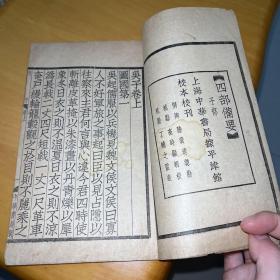 【四部備要】
子部
上海中華書局據平津館
校本校刊
吳子卷上
圖國第一
吳起儒服以兵機見魏文侯文侯曰寡
人不好軍旅之事起曰臣以見占隱以
往察來主君何言與心違今君四時使
斬離皮革掩以朱漆畫以丹青爍以犀
象冬日衣之則不溫夏日衣之則不涼
為長戟二丈四尺短戟一丈二尺革車
奄戶縵輪籠轂觀之於目則不麗乘之